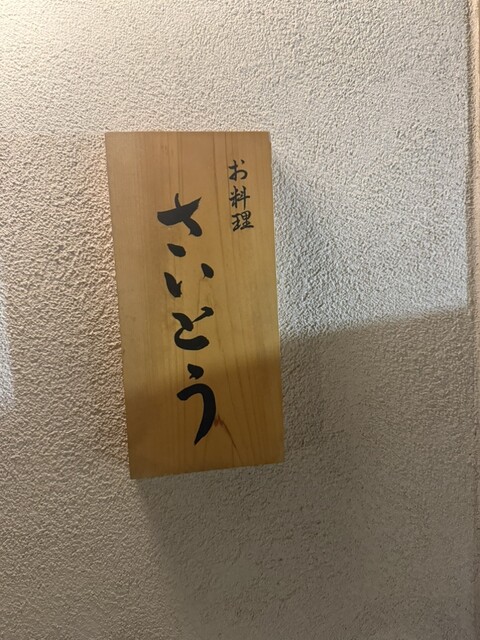 お料理
さいとう